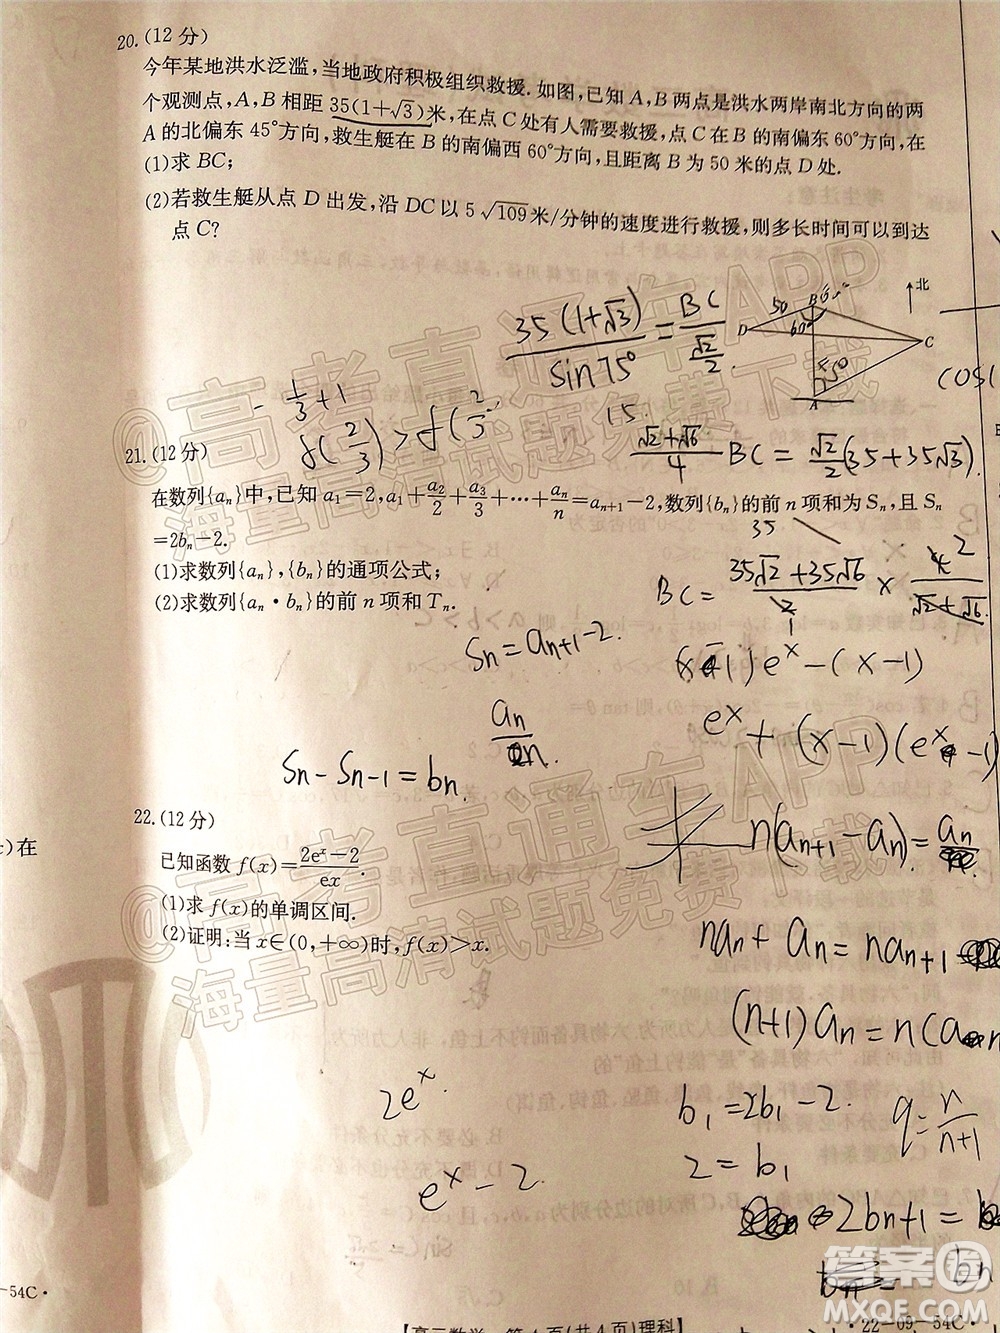 20. (12分)
今年某地洪水泛滥,当地政府积极组织救援.如图,已知A,B两点是洪水两岸南北方向的两
个观测点,A,B相距35(1+√3)米,在点C处有人需要救援,点C在B的南偏东60°方向,在
A的北偏东45°方向,救生艇在B的南偏西60°方向,且距离B为50米的点D处.
(1)求BC;
(2)若救生艇从点D出发,沿DC以5√109米/分钟的速度进行救援,则多长时间可以到达
点C?
北
50
B
D
60°
C
A
35(1+√3)/sin75° = BC/(√2/2)
cos
-1/3+1
f(2/3) > f(2/3
15.
(√2+√6)/4 BC = √2/2(35+35√3).
21. (12分)
在数列{aₙ}中,已知a₁=2,a₁+a₂/2+a₃/3+…+aₙ/n=aₙ₊₁-2,数列{bₙ}的前n项和为Sₙ,且Sₙ
=2bₙ-2.
(1)求数列{aₙ},{bₙ}的通项公式;
(2)求数列{aₙ·bₙ}的前n项和Tₙ.
35
BC = (35√2+35√6)/2 × 4/(√2+√6)
Sn=an+1-2.
eˣ-(x-1)
an/n
eˣ+(x-1)(eˣ-1)
Sn-Sn-1=bn.
22. (12分)
已知函数f(x)=(2eˣ-2)/(ex).
(1)求f(x)的单调区间.
(2)证明:当x∈(0,+∞)时,f(x)>x.
n(an+1-an)=an
nan+an=nan+1
(n+1)an=n(a n
2eˣ
b₁=2b₁-2.
q=n/(n+1)
2=b₁
eˣ-2
2bn+1=b
bn
)在
-54C·
【高三数学 第4页(共4页)理科】
·22-09-54C·
@高考直通车APP
海量高清试题免费下载
@高考直通车APP
海量高清试题免费下载
答案圈
MXQE.COM